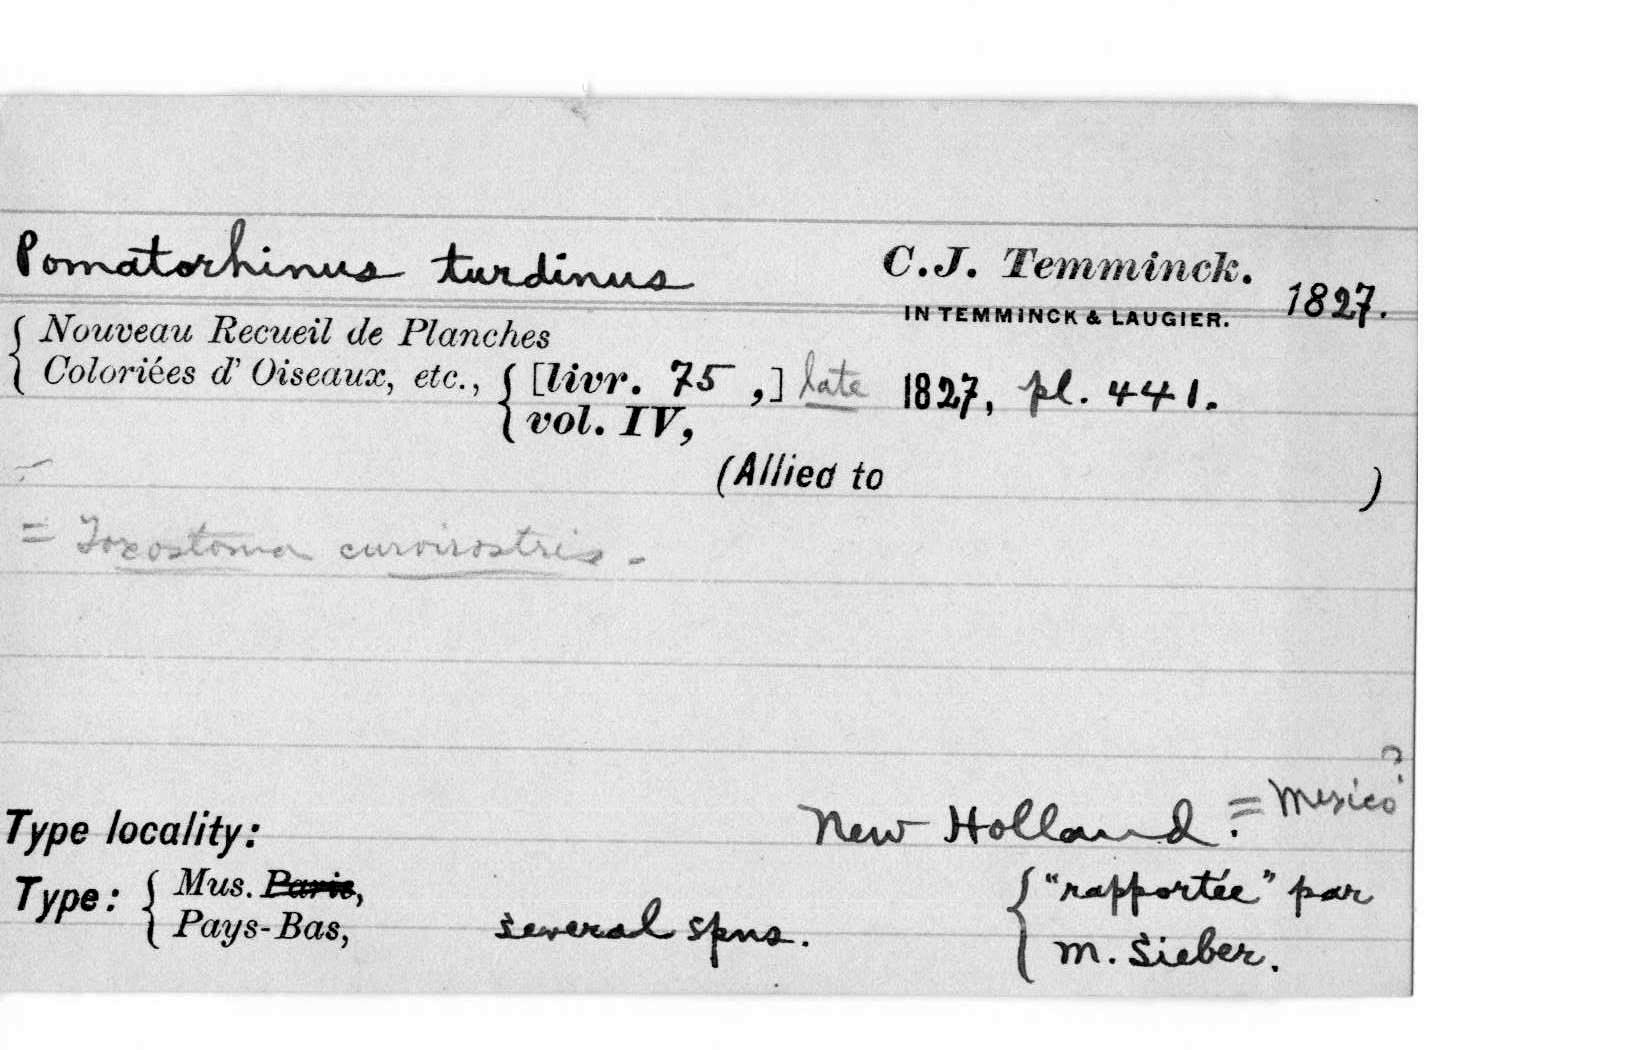 Pomatorhinus turdinus C.J. Temminck. 1827.
IN TEMMINCK & LAUGIER.
Nouveau Recueil de Planches
Coloriées d' Oiseaux, etc., [livr. 75 ,] late 1827, pl. 441.
vol. IV,
(Allied to )
= Toxostoma curvirostris -
Type locality: New Holland. = Mexico?
Type: Mus. Paris, "rapportée" par
Pays-Bas, several spns. M. Sieber.